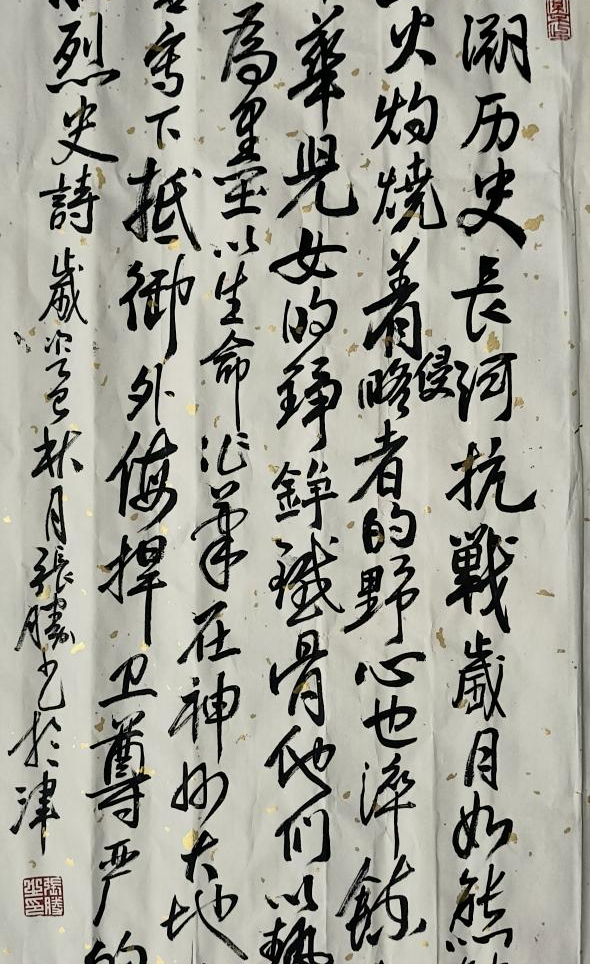 溯历史长河抗戰歲月如熊
火灼燒着侵略者的野心也淬
華児女的錚錚鐵骨他们以
為墨以生命作筆在神州大地
寫下抵御外侮捍卫尊严的
烈史詩
歲次乙巳秋月張勝書於津